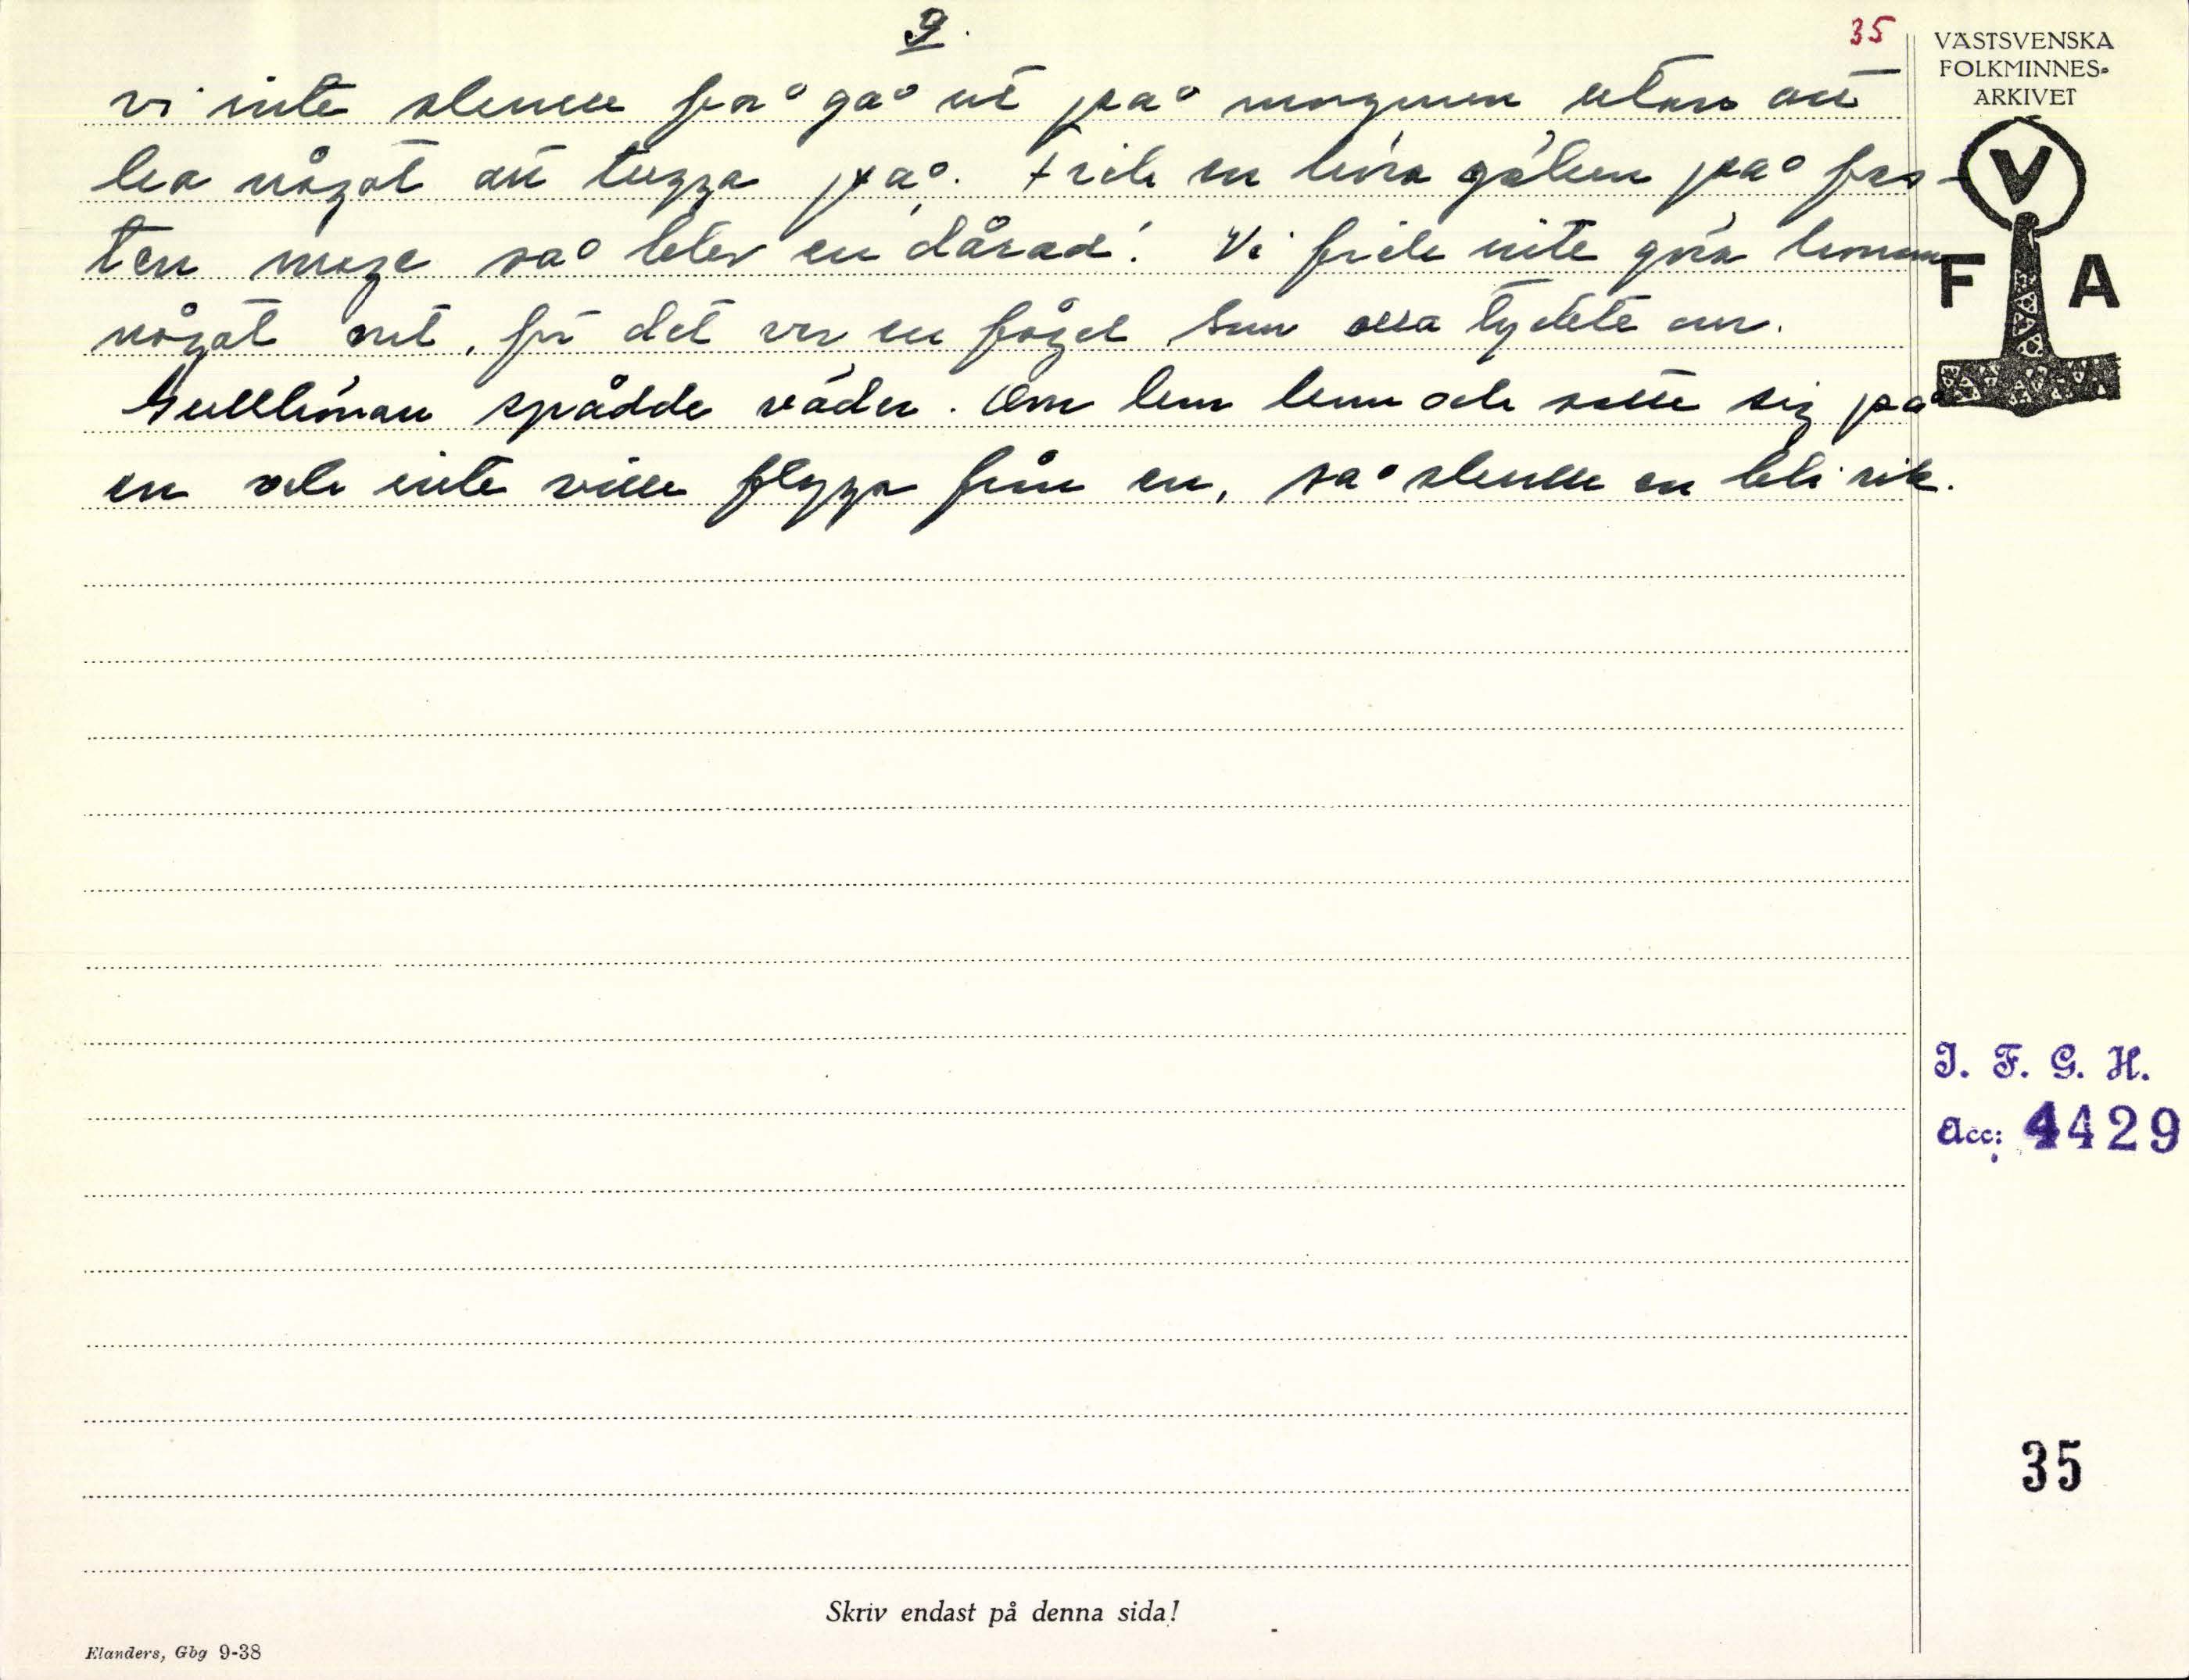 9.
35
vi inte skulle få gå ut på morgonen utan att
ha något att tugga på. Fick en höra göken på fas-
ten mage så blev en dårad! Vi fick inte göra honom
något ont, för det var en fågel som alla tyckte om.
Gullhönan spådde väder. Om hon kom och satte sig på
en och inte ville flyga från en, så skulle en bli rik.
VÄSTSVENSKA
FOLKMINNES-
ARKIVET
V
F A
I. F. G. H.
Acc: 4429
35
Skriv endast på denna sida!
Elanders, Gbg 9-38